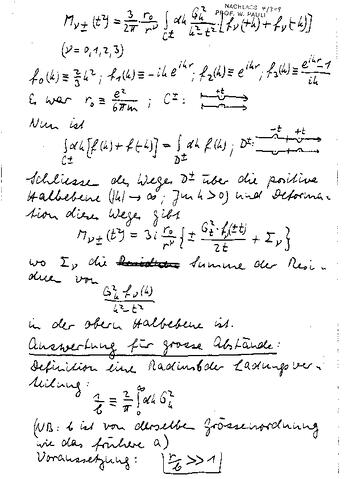 NACHLASS 4/249
PROF. W. PAULI
M_{ν±}(t²) = 3/2π r₀/r^ν ∫_{C±} dk G_k²/(k²-t²) [f_ν(+k) + f_ν(-k)]
(ν = 0, 1, 2, 3)
f₀(k) ≡ 2/3 k² ; f₁(k) ≡ -ik e^{ikr} ; f₂(k) ≡ e^{ikr} ; f₃(k) ≡ (e^{ikr}-1)/ik
Es war r₀ ≡ e²/6πm ; C± : +t
Nun ist
∫_{C±} dk [f(k) + f(-k)] = ∫_{D±} dk f(k) ; D± : -t +t
Schliesse des Weges D± über die positive
Halbebene (|k| → ∞ ; Jm k > 0) und Deforma-
tion dieses Weges gibt
M_{ν±}(t²) = 3i r₀/r^ν { ± G_t² f_ν(±t)/2t + Σ_ν }
wo Σ_ν die Summe der Resi-
duen von
G_k² f_ν(k)/(k²-t²)
in der obern Halbebene ist.
Auswertung für grosse Abstände:
Definition eine Radius b der Ladungsver-
teilung:
1/b ≡ 2/π ∫₀^∞ dk G_k²
(NB: b ist von derselben Grössenordnung
wie das frühere a)
Voraussetzung: r/b >> 1